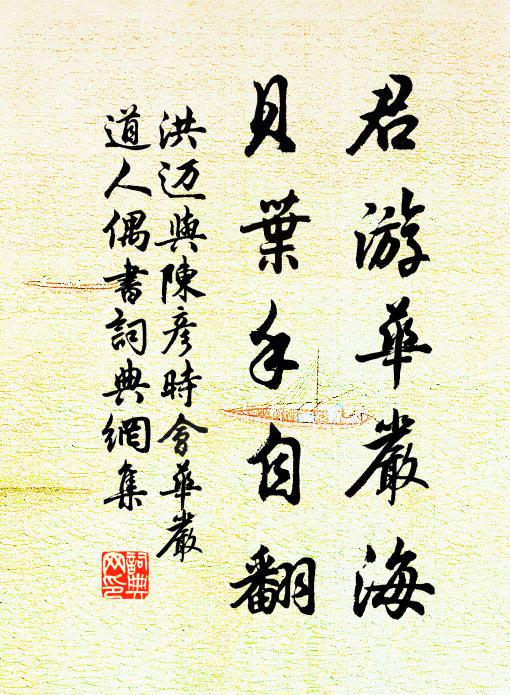 君游华嚴海
貝葉手自翻
洪迈與陳彦時會華嚴
道人偶書詞典網集
詞典
网印